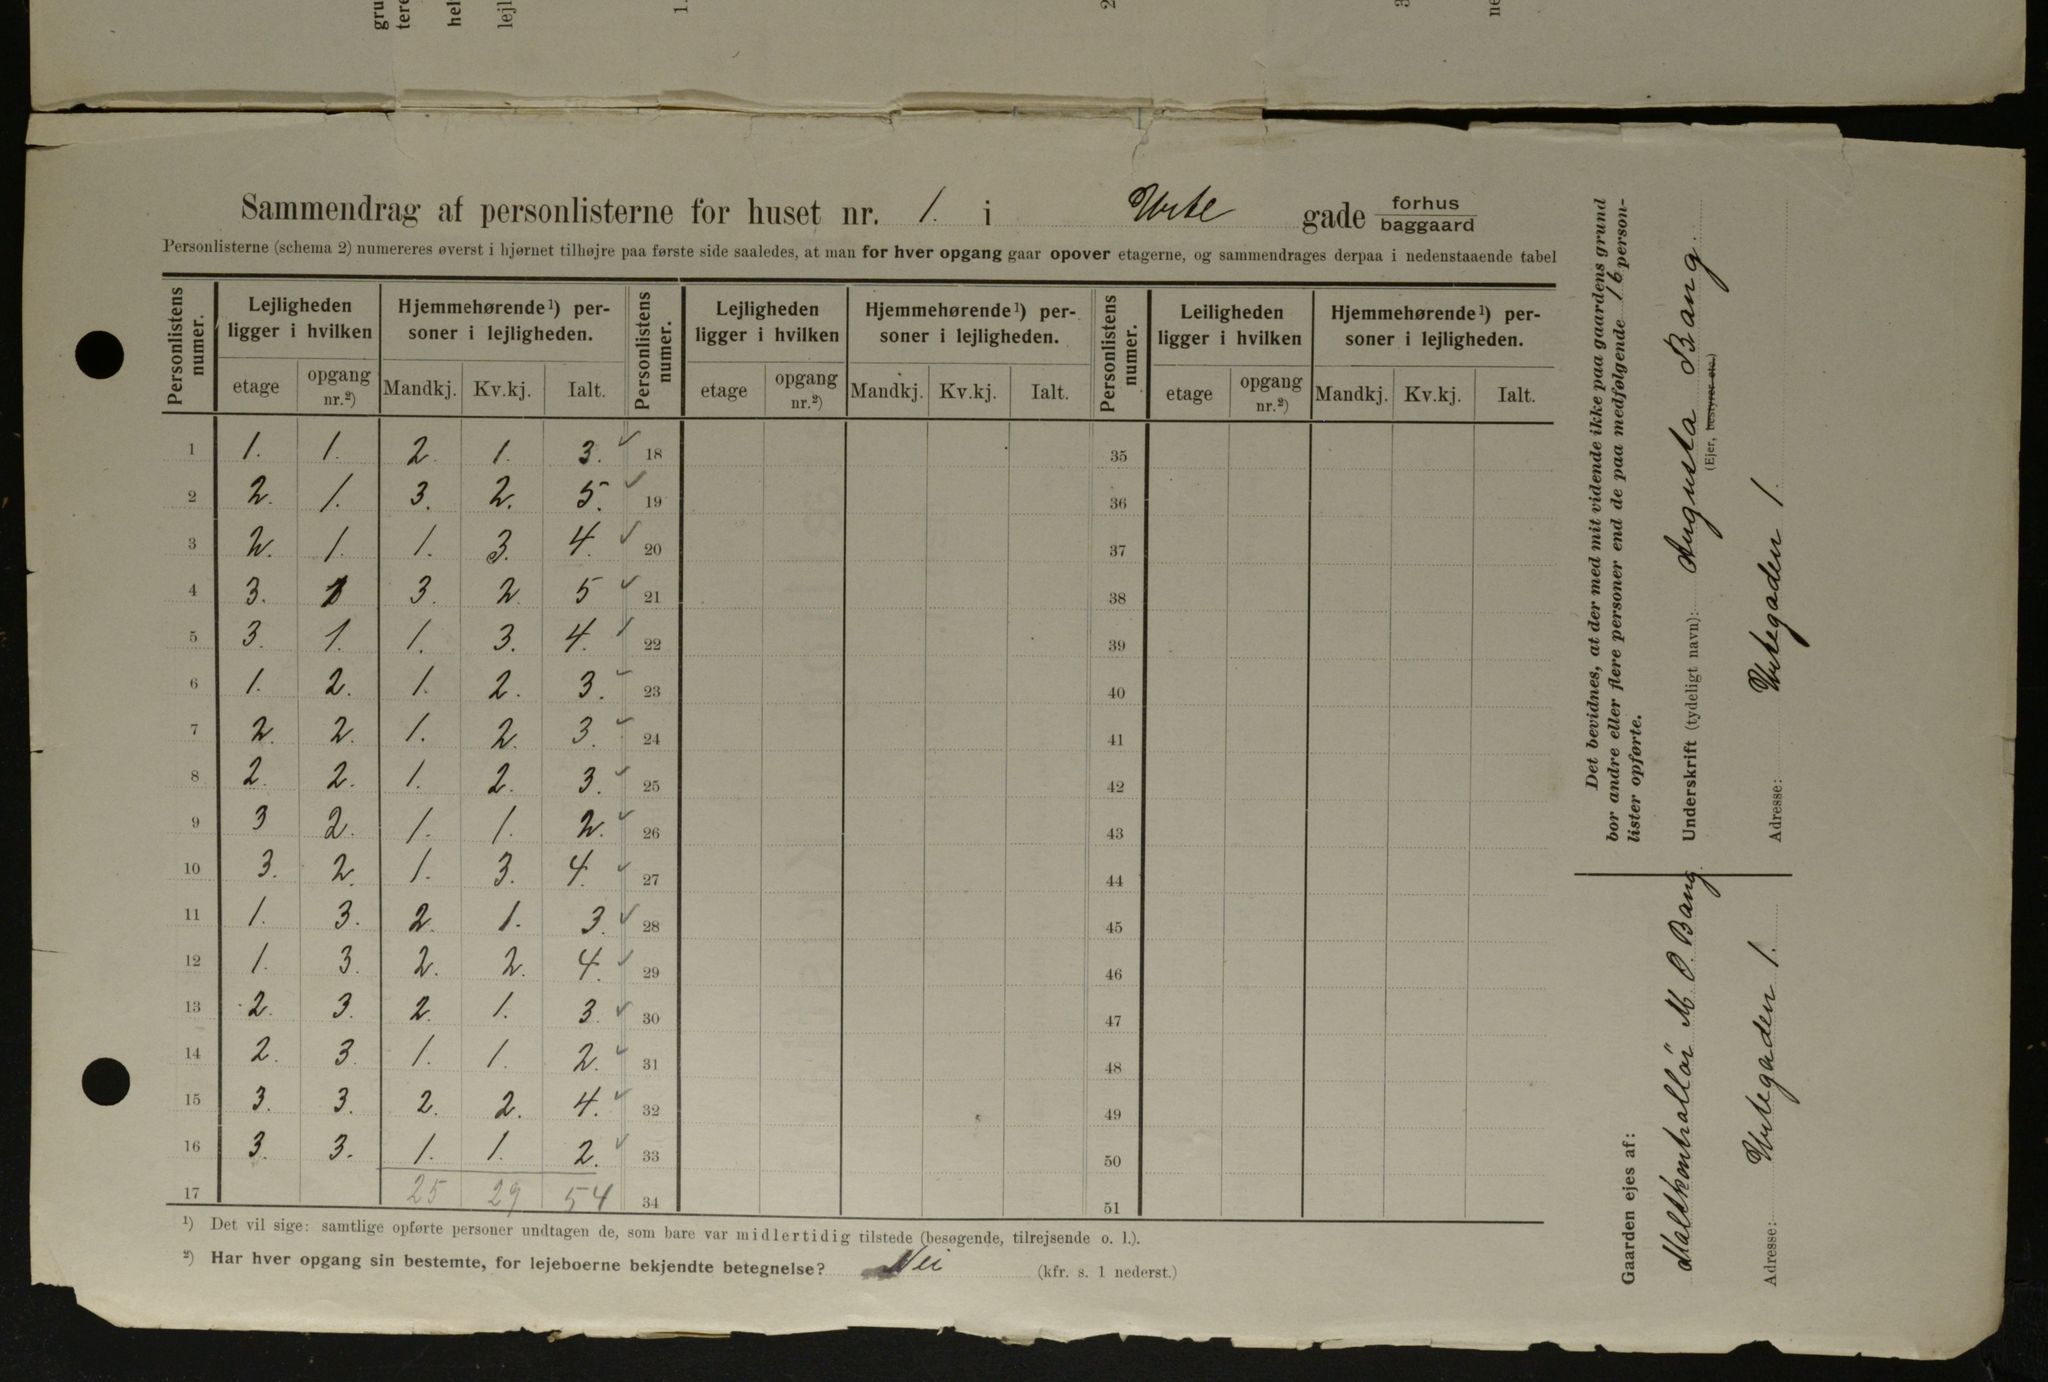 Sammendrag af personlisterne for huset nr. 1. i Urte gade forhus baggaard
Personlisterne (schema 2) numereres øverst i hjørnet tilhøjre paa første side saaledes, at man for hver opgang gaar opover etagerne, og sammendrages derpaa i nedenstaaende tabel
Personlistens numer. Lejligheden ligger i hvilken Hjemmehørende¹) personer i lejligheden. Personlistens numer. Lejligheden ligger i hvilken Hjemmehørende¹) personer i lejligheden. Personlistens numer. Leiligheden ligger i hvilken Hjemmehørende¹) personer i lejligheden.
etage opgang nr.²) Mandkj. Kv.kj. Ialt. etage opgang nr.²) Mandkj. Kv.kj. Ialt. etage opgang nr.²) Mandkj. Kv.kj. Ialt.
1 1. 1. 2. 1. 3. 18 35
2 2. 1. 3. 2. 5. 19 36
3 2. 1. 1. 3. 4. 20 37
4 3. 1 3. 2. 5 21 38
5 3. 1. 1. 3. 4. 22 39
6 1. 2. 1. 2. 3. 23 40
7 2. 2. 1. 2. 3. 24 41
8 2. 2. 1. 2. 3. 25 42
9 3 2. 1. 1. 2. 26 43
10 3. 2. 1. 3. 4. 27 44
11 1. 3. 2. 1. 3. 28 45
12 1. 3. 2. 2. 4. 29 46
13 2. 3. 2. 1. 3. 30 47
14 2. 3. 1. 1. 2. 31 48
15 3. 3. 2. 2. 4. 32 49
16 3. 3. 1. 1. 2. 33 50
17 25 29 54 34 51
¹) Det vil sige: samtlige opførte personer undtagen de, som bare var midlertidig tilstede (besøgende, tilrejsende o. l.).
²) Har hver opgang sin bestemte, for lejeboerne bekjendte betegnelse? Nei (kfr. s. 1 nederst.)
Det bevidnes, at der med mit vidende ikke paa gaardens grund
bor andre eller flere personer end de paa medfølgende 16 person-
lister opførte.
Underskrift (tydeligt navn): Augusta Bang.
(Ejer, bestyrer etc.)
Adresse: Urtegaden 1.
Gaarden ejes af:
Maltkontrollør M. O. Bang.
Adresse: Urtegaden 1.